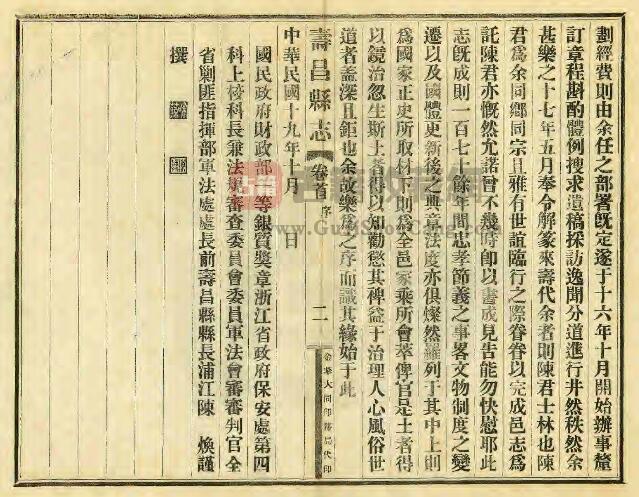 劃經費則由余任之部署既定遂于十六年十月開始辦事釐
訂章程斟酌體例搜求遺稿採訪逸聞分道進行井然秩然余
甚樂之十七年五月奉令解篆來壽代余者則陳君士林也陳
君爲余同鄉同宗且雅有世誼臨行之際眷眷以完成邑志爲
託陳君亦慨然允諾曾不幾時卽以書成見吿能勿快慰耶此
志旣成則一百七十餘年間忠孝節義之事畧文物制度之變
遷以及國體更新後之典章法度亦俱燦然羅列于其中上則
爲國家正史所取材下則爲全邑家乘所會萃俾官是土者得
以鏡治忽生斯土者得以知勸懲其裨益于治理人心風俗世
道者蓋深且鉅也余故樂爲之序而識其緣始于此
中華民國十九年十月 日
壽昌縣志
卷首 序
二
金華大同印務局代印
國民政府財政部 等銀質獎章浙江省政府保安處第四
科上校科長兼法規審查委員會委員軍法會審審判官全
省剿匪指揮部軍法處處長前壽昌縣縣長浦江陳 煥謹
撰